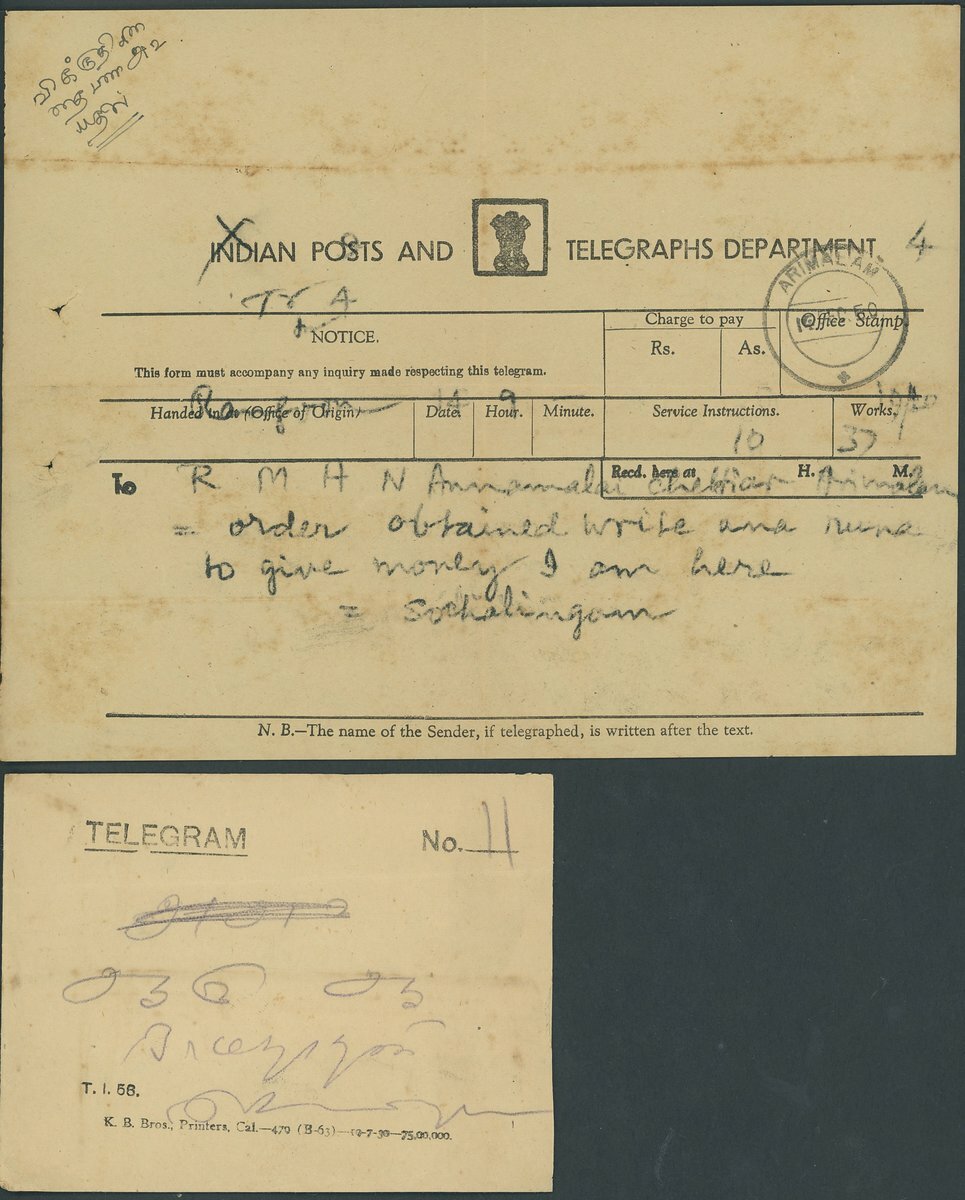 INDIAN POSTS AND TELEGRAPHS DEPARTMENT. 4
8
Tr A
ARIMALAM
NOTICE.
Charge to pay
Office Stamp.
Rs. As.
This form must accompany any inquiry made respecting this telegram.
Handed in at (Office of Origin) Date. Hour. Minute. Service Instructions. Works.
Rangoon 14 9
10 37
Recd. here at H. M.
To R M H N Annamalai Chettiar Arimalam
= order obtained write ana runa
to give money I am here
= Sockalingam
N. B.—The name of the Sender, if telegraphed, is written after the text.
TELEGRAM No. 11
T. I. 56.
K. B. Bros., Printers, Cal.—479 (B-63)—12-7-39—75,00,000.